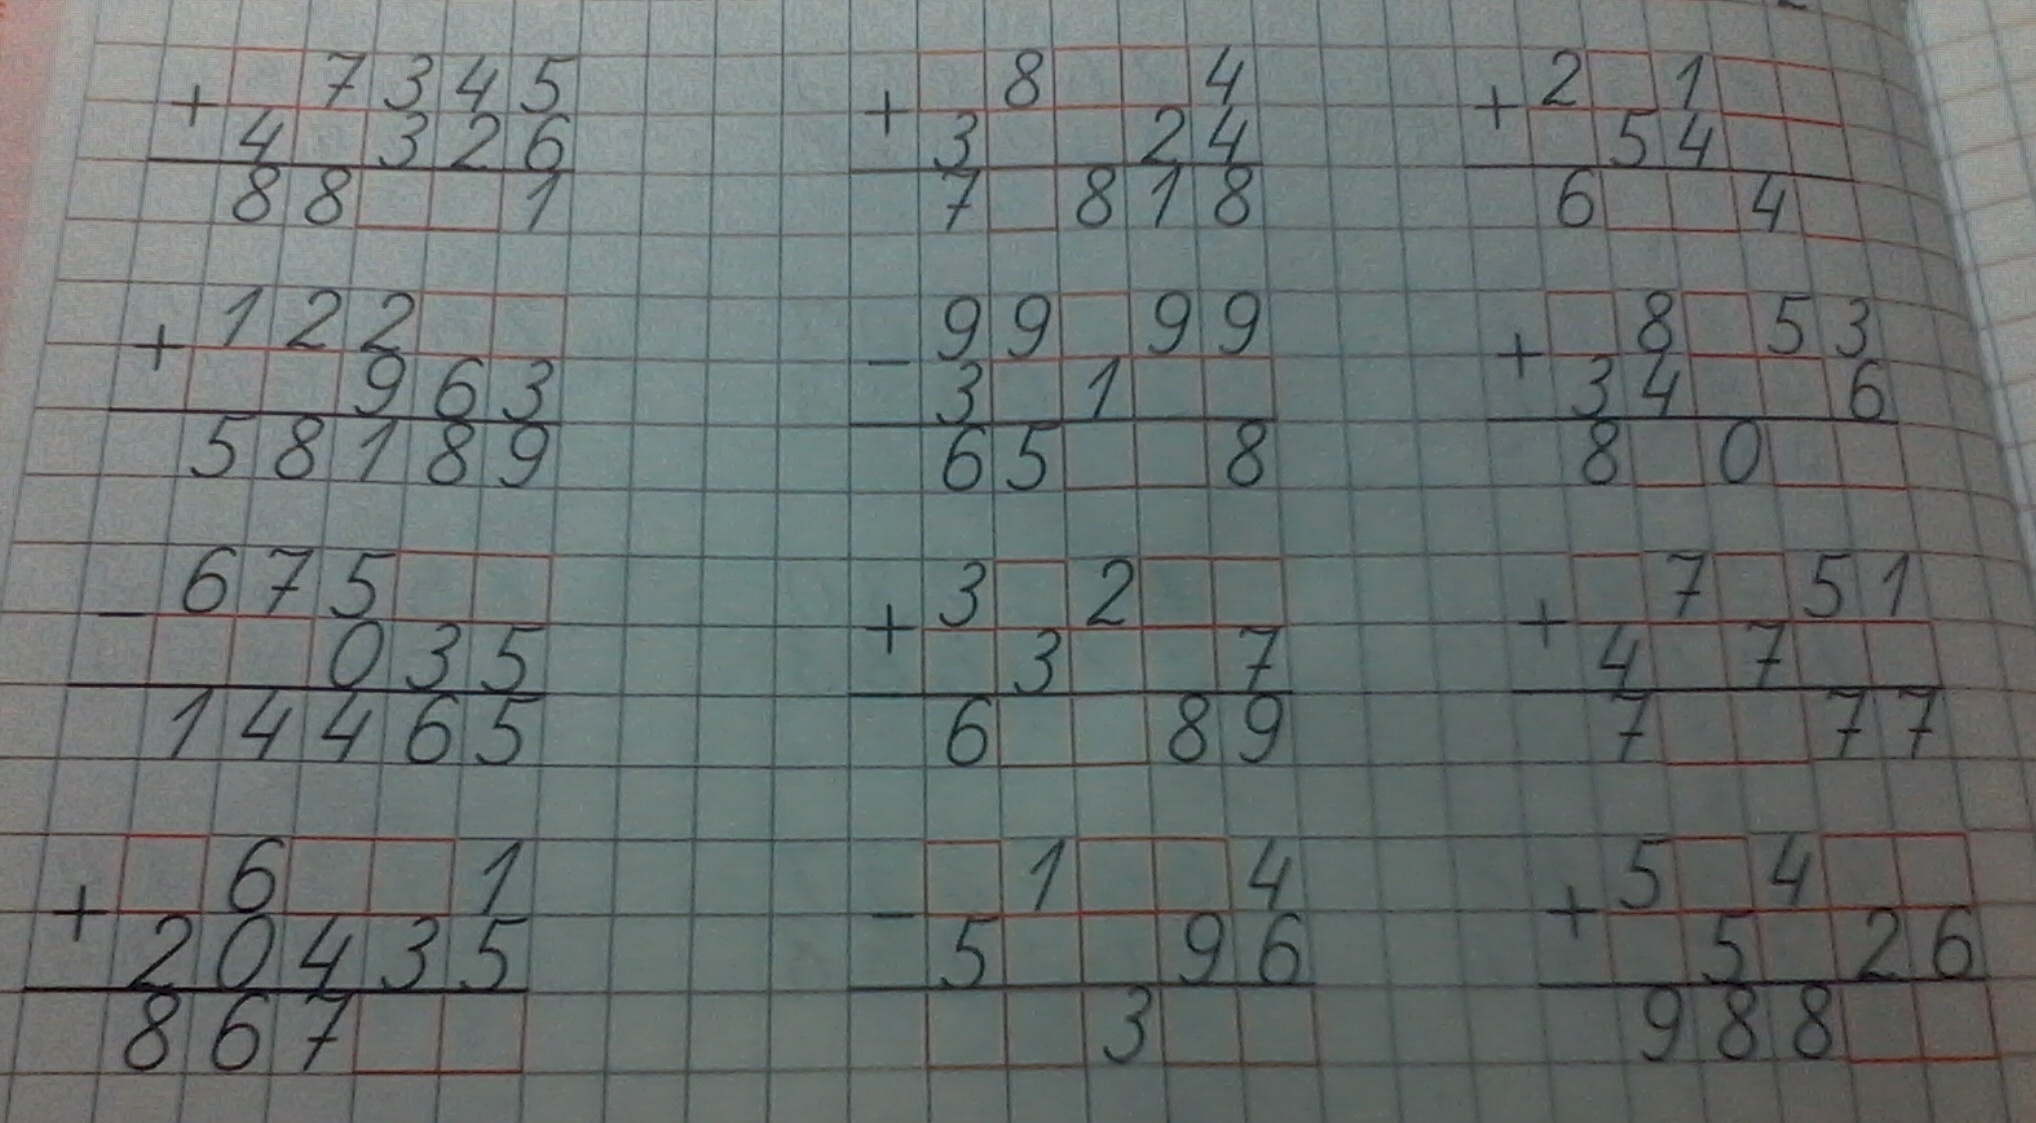 + □7345   + □8□□4   + 2□1□□
4□326   3□□24   □54□□
88□□1   7□818   6□□4□
+ 122□□   - 99□99   + □8□53
□□963   3□1□□   34□□6
58189   65□□8   8□0□□
- 675□□   + 3□2□□   + □7□51
□□035   □3□□7   4□7□□
14465   6□□89   7□□77
+ □6□□1   - □1□□4   + 5□4□□
20435   5□□96   □5□26
867□□   □□3□□   988□□